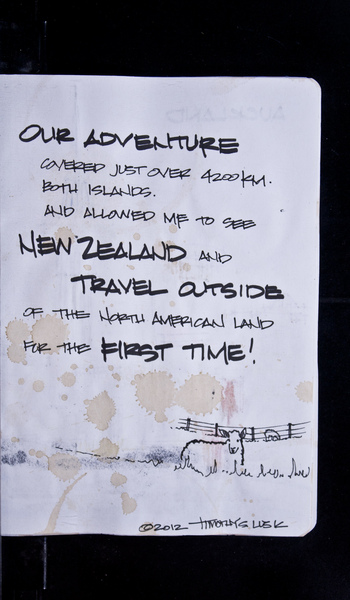 OUR ADVENTURE
COVERED JUST OVER 4200 KM.
BOTH ISLANDS.
AND ALLOWED ME TO SEE
NEW ZEALAND AND
TRAVEL OUTSIDE
OF THE NORTH AMERICAN LAND
FOR THE FIRST TIME!
©2012 TIMOTHY S LUSK
AUCKLAND